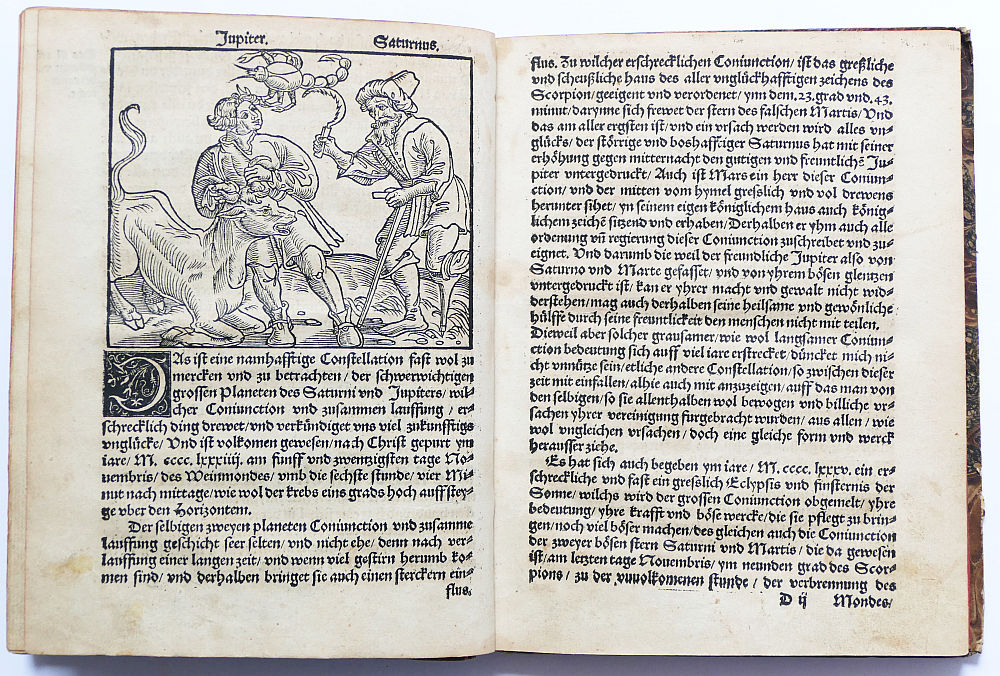 Jupiter. Saturnus.
DAs ist eine namhafftige Constellation fast wol zu
mercken vnd zu betrachten/ der schwerwichtigen
grossen Planeten des Saturni vnd Jupiters/ wil-
cher Coniunction vnd zusammen lauffung/ er-
schrecklich ding drewet/vnd verkündiget vns viel zukunfftigs
vnglücke/ Vnd ist volkomen gewesen/nach Christ gepurt ym
iare/ M. cccc. lxxxiiij. am funff vnd zwentzigsten tage No-
uembris/des Weinmondes/ vmb die sechste stunde/ vier Mi-
nut nach mittage/wie wol der krebs eins grads hoch auffstey-
ge vber den Horizontem.
Der selbigen zweyen planeten Coniunction vnd zusamme
lauffung geschicht seer selten/ vnd nicht ehe/ denn nach ver-
lauffung einer langen zeit/vnd wenn viel gestirn herumb ko-
men sind/ vnd derhalben bringet sie auch einen sterckern ein-
flus.
flus. Zu wilcher erschrecklichen Coniunction/ ist das greßliche
vnd scheußliche haus des aller vnglückhafftigen zeichens des
Scorpion/geeigent vnd verordenet/ ynn dem. 23. grad vnd. 43.
minut/darynne sich frewet der stern des falschen Martis/ Vnd
das am aller ergsten ist/vnd ein vrsach werden wird alles vn-
glücks/ der störrige vnd boshafftiger Saturnus hat mit seiner
erhöhung gegen mitternacht den gutigen vnd freuntlichẽ Ju-
piter vntergedruckt/ Auch ist Mars ein herr dieser Coniun-
ction/vnd der mitten vom hymel greslich vnd vol drewens
herunter sihet/ yn seinem eigen königlichem haus auch könig-
lichem zeichẽ sitzend vnd erhaben/ Derhalben er yhm auch alle
ordenung vñ regierung dieser Coniunction zuschreibet vnd zu-
eignet. Vnd darumb die weil der freundliche Jupiter also von
Saturno vnd Marte gefasset/ vnd von yhrem bösen glentzen
vntergedruckt ist/ kan er yhrer macht vnd gewalt nicht wid-
derstehen/ mag auch derhalben seine heilsame vnd gewönliche
hülffe durch seine freuntlickeit den menschen nicht mit teilen.
Dieweil aber solcher grausamer/ wie wol langsamer Coniun-
ction bedeutung sich auff viel iare erstrecket/ düncket mich ni-
cht vnnütze sein/etliche andere Constellation/so zwischen dieser
zeit mit einfallen/alhie auch mit anzuzeigen/ auff das man von
den selbigen/ so sie allenthalben wol bewogen vnd billiche vr-
sachen yhrer vereinigung furgebracht wurden/ aus allen/ wie
wol vngleichen vrsachen/ doch eine gleiche form vnd werck
herausser ziehe.
Es hat sich auch begeben ym iare/ M. cccc. lxxxv. ein er-
schreckliche vnd fast ein greslich Eclypsis vnd finsternis der
Sonne/ wilchs wird der grossen Coniunction obgemelt/ yhre
bedeutung/ yhre krafft vnd böse wercke/ die sie pflegt zu brin-
gen/noch viel böser machen/des gleichen auch die Coniunction
der zweyer bösen stern Saturni vnd Martis/ die da gewesen
ist/am letzten tage Nouembris/ ym neunden grad des Scor-
pions/ zu der vnuolkomenen stunde/ der verbrennung des
D ij Mondes/